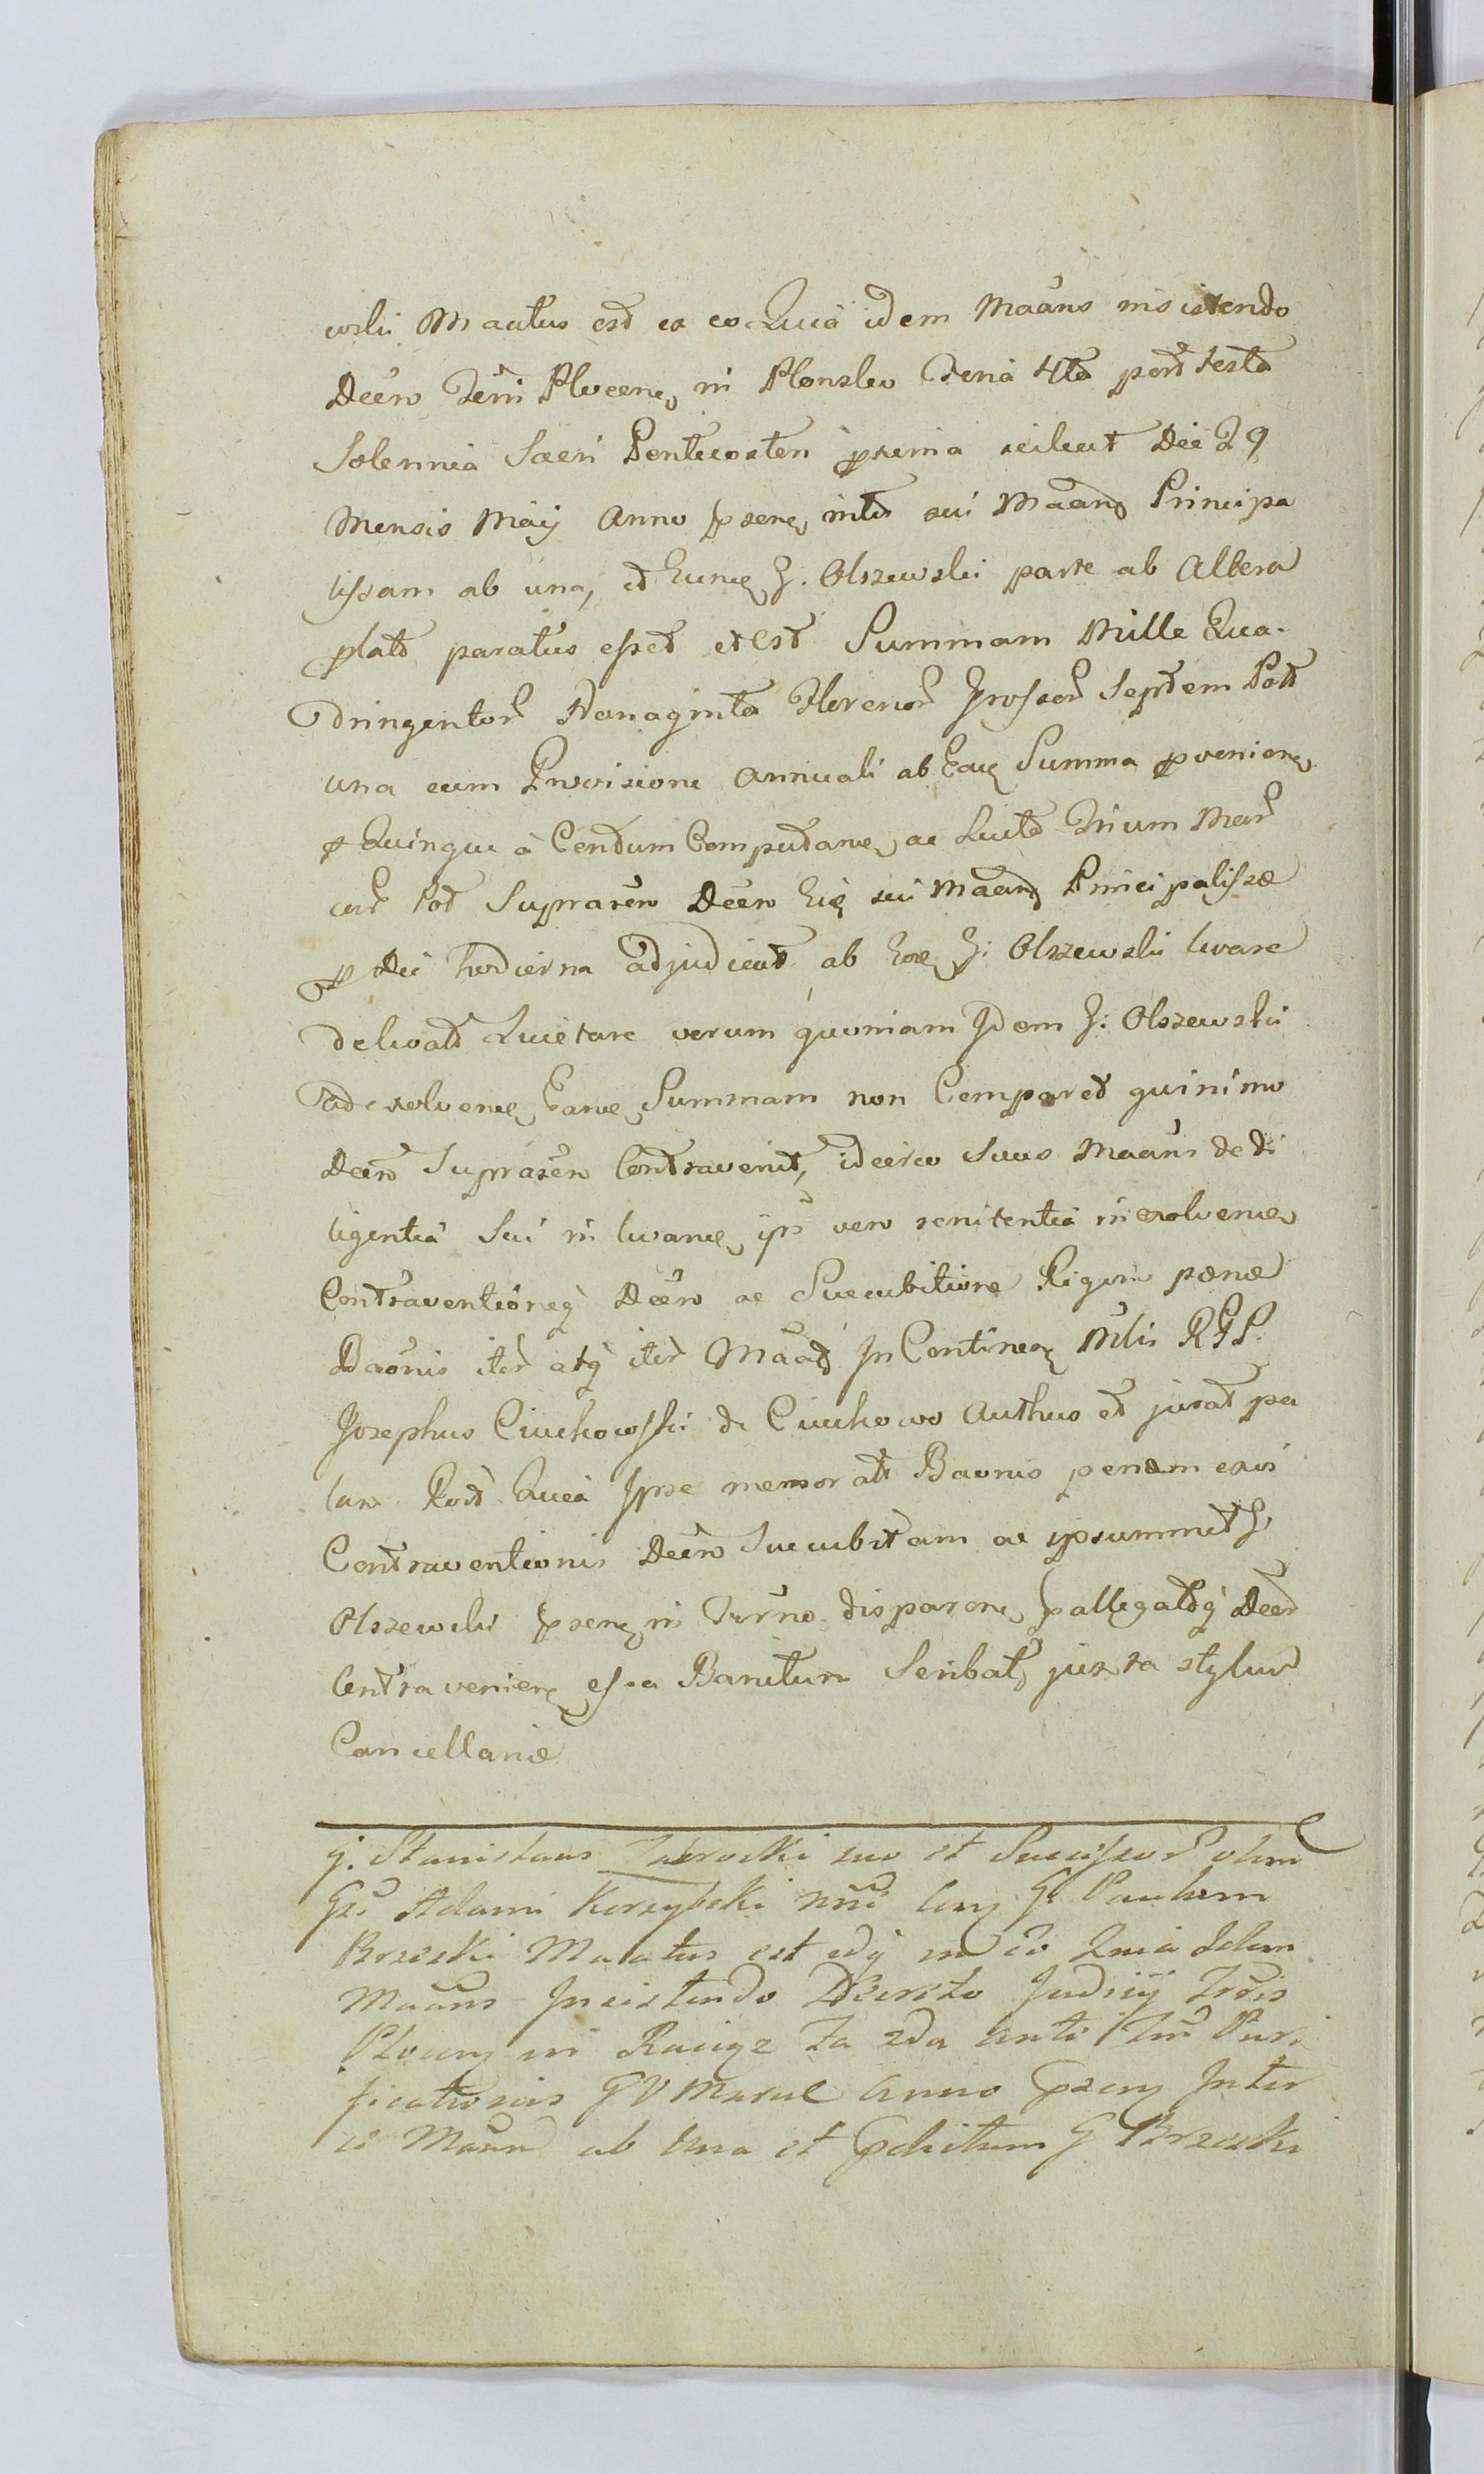 wski Maātus est ex eo Quia idem Maāns insistendo
Decrō Terri Plocen, in Plonsko Feria 4ta post Festa
Solennia Sacri Pentecosten pxima scilicet Die 29
Mensis Maij Anno psen, inter sui Maand Principa
lissam ab una, et Eunq G. Olszewski parte ab Altera
plato paratus esset et Est Summam Mille Qua-
dringentor Nonaginta Florenor Grossor Septem Poll
una cum Provisione Annuali ab Eaq Summa pvenien,
p Quinque à Centum Computan, ac Lucto Trium Mar
car Pol Suprasēn Decrō Eiq sui Maand Principalissæ
p Die hodierna adjudicat ab Eoq G: Olszewski levare
delevato Quietare verum quoniam Idem G: Olszewski
ad exolven, Eanq, Summam non Comparet quinimo
Decrō Suprasēn Contravenit, idcirco Suus Maāns de di
ligentia Sui in levan, ips vero renitentia in exolven,
Contraventioneq Decrō ac Succubitione Rigoris pænæ
Baōnis iter atq iter Maāt In Continen Mtis RGL
Josephus Ciuchowski de Ciuchowo Authus et jurat pa
lam Rect Quia Ipse memorati Baonis penam exvi
Contraventionis Decrō Succubitam ac ipsummet G.
Olszewski psen, in Termno disparen, pallegatoq Decrō
Contravenien, essea Banitum Scribat, juxta stylum
Cancellariæ
G. Stanislaus Zabrocki suo et Successor olim
Grsi Adami Korzybski nōie Con G. Paulum
Brzeski Maatus est edq ex eo Quia Idem
Maāns Insistendo Decreto Judicij Trris
Plocen in Raciąz Fa 2da Anti Fm Puri
ficationis GV Mariæ Anno psen Inter
se Maān ab Una et pdictum G Brzeski